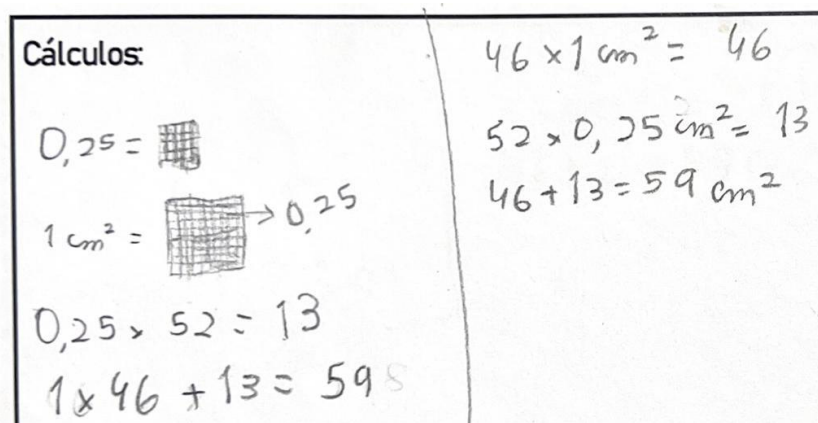 Cálculos:
0,25 =
1 cm² = → 0,25
0,25 x 52 = 13
1 x 46 + 13 = 59
46 x 1 cm² = 46
52 x 0,25 cm² = 13
46 + 13 = 59 cm²